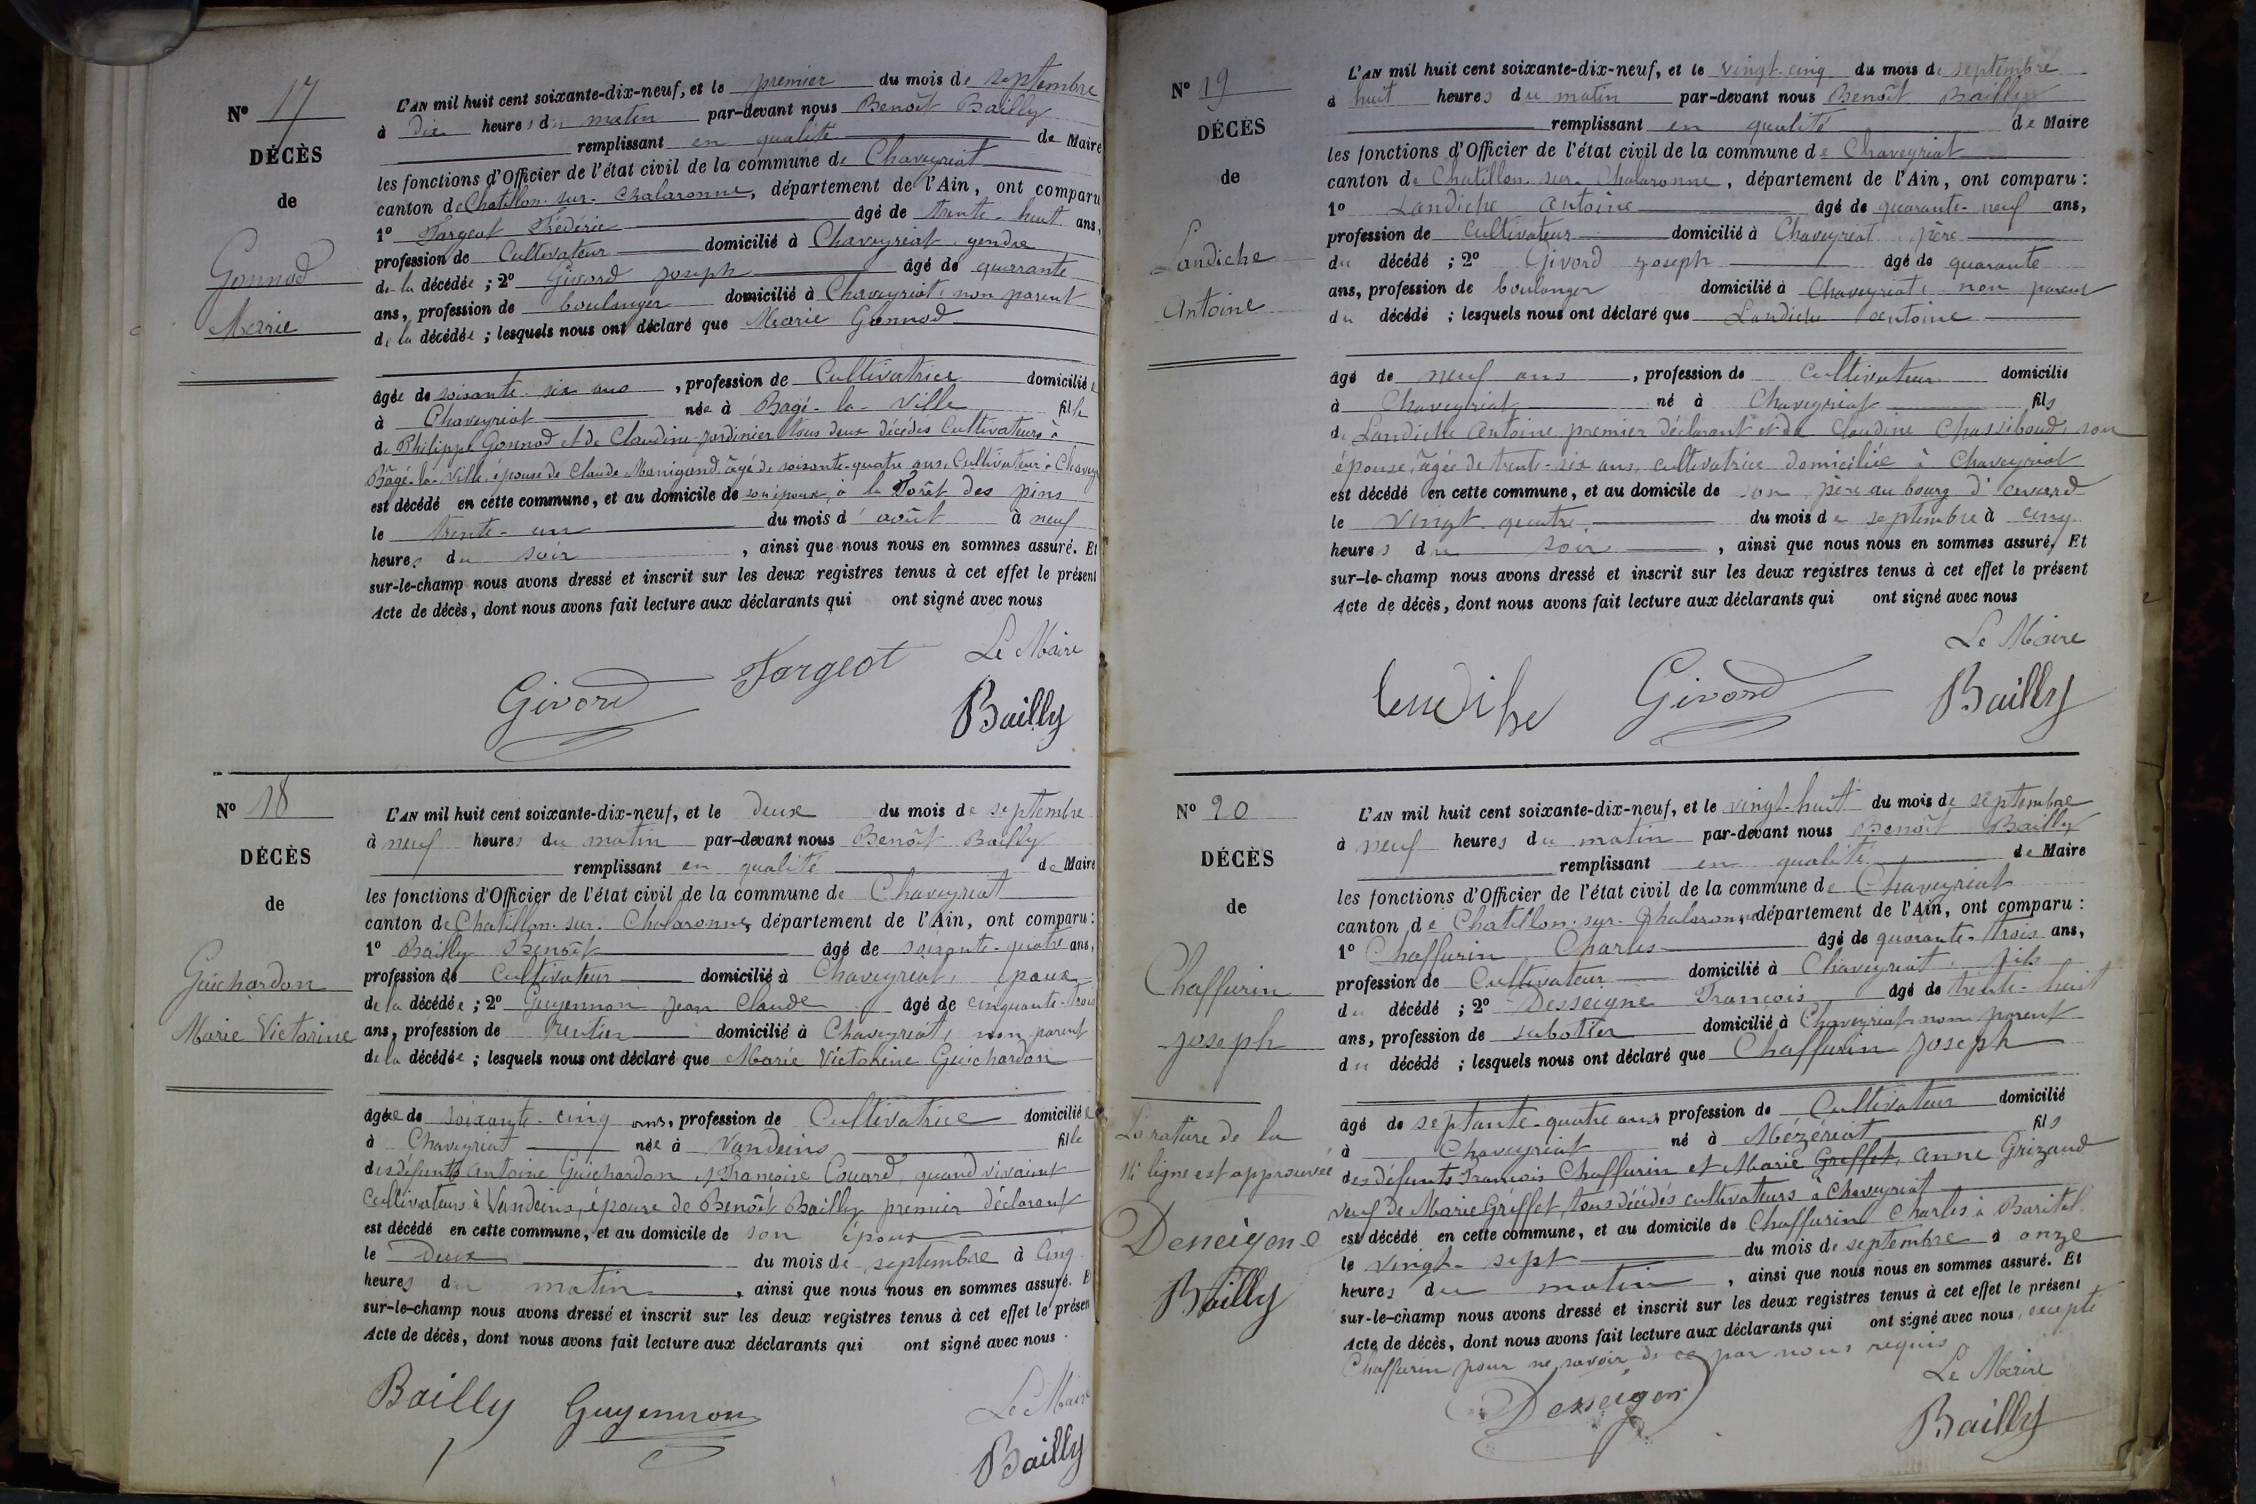 N° 17
DÉCÈS
de
Gonnod
Marie
L'AN mil huit cent soixante-dix-neuf, et le premier du mois de septembre
à Dix heures du matin par-devant nous Benoît Bailly
remplissant en qualité de Maire
les fonctions d'Officier de l'état civil de la commune de Chaveyriat
canton de Chatillon-sur-Chalaronne, département de l'Ain, ont comparu
1° Fargeot Frédéric âgé de trente-huit ans,
profession de Cultivateur domicilié à Chaveyriat, gendre
de la décédée ; 2° Givord Joseph âgé de quarante
ans, profession de boulanger domicilié à Chaveyriat, non parent
de la décédée ; lesquels nous ont déclaré que Marie Gonnod
âgée de soixante-six ans, profession de Cultivatrice domiciliée
à Chaveyriat née à Bagé-la-Ville fille
de Philippe Gonnod et de Claudine Jardinier tous deux décédés Cultivateurs à
Bâgé-la-Ville, épouse de Claude Manigand âgé de soixante-quatre ans, Cultivateur à Chavey
est décédé en cette commune, et au domicile de son époux, à la Forêt des pins
le trente-un du mois d'août à neuf
heures du soir, ainsi que nous nous en sommes assuré. Et
sur-le-champ nous avons dressé et inscrit sur les deux registres tenus à cet effet le présent
Acte de décès, dont nous avons fait lecture aux déclarants qui ont signé avec nous
Le Maire
Givord Fargeot Bailly
N° 18
DÉCÈS
de
Guichardon
Marie Victorine
L'AN mil huit cent soixante-dix-neuf, et le Deux du mois de septembre
à neuf heures du matin par-devant nous Benoît Bailly
remplissant en qualité de Maire
les fonctions d'Officier de l'état civil de la commune de Chaveyriat
canton de Chatillon-sur-Chalaronne, département de l'Ain, ont comparu :
1° Bailly Benoît âgé de soixante-quatre ans,
profession de Cultivateur domicilié à Chaveyriat, époux
de la décédée ; 2° Guyennon Jean Claude âgé de cinquante-trois
ans, profession de rentier domicilié à Chaveyriat, non parent
de la décédée ; lesquels nous ont déclaré que Marie Victorine Guichardon
âgée de soixante-cinq ans, profession de Cultivatrice domiciliée
à Chaveyriat née à Vandeins fille
des défunts Antoine Guichardon et Françoise Couard, quand vivaient
Cultivateurs à Vandeins, épouse de Benoît Bailly premier déclarant
est décédé en cette commune, et au domicile de son époux
le Deux du mois de septembre à Cinq
heures du matin, ainsi que nous nous en sommes assuré. E
sur-le-champ nous avons dressé et inscrit sur les deux registres tenus à cet effet le présen
Acte de décès, dont nous avons fait lecture aux déclarants qui ont signé avec nous.
Le Maire
Bailly Guyennon
Bailly
N° 19
DÉCÈS
de
Landiche
Antoine
L'AN mil huit cent soixante-dix-neuf, et le vingt-cinq du mois de septembre
à huit heures du matin par-devant nous Benoît Bailly
remplissant en qualité de Maire
les fonctions d'Officier de l'état civil de la commune de Chaveyriat
canton de Chatillon-sur-Chalaronne, département de l'Ain, ont comparu :
1° Landiche Antoine âgé de quarante-neuf ans,
profession de Cultivateur domicilié à Chaveyriat, père
du décédé ; 2° Givord Joseph âgé de quarante
ans, profession de boulanger domicilié à Chaveyriat, non parent
du décédé ; lesquels nous ont déclaré que Landiche Antoine
âgé de neuf ans, profession de cultivateur domicilié
à Chaveyriat né à Chaveyriat fils
de Landiche Antoine premier déclarant et de Claudine Chassiboud, son
épouse, âgée de trente-six ans, cultivatrice domiciliée à Chaveyriat
est décédé en cette commune, et au domicile de son père au bourg d'
le vingt-quatre du mois de septembre à cinq
heures du soir, ainsi que nous nous en sommes assuré. Et
sur-le-champ nous avons dressé et inscrit sur les deux registres tenus à cet effet le présent
Acte de décès, dont nous avons fait lecture aux déclarants qui ont signé avec nous
Le Maire
Landiche Givord Bailly
N° 20
DÉCÈS
de
Chaffurin
Joseph
La rature de la
14e ligne est approuvée
Desseigne
Bailly
L'AN mil huit cent soixante-dix-neuf, et le vingt-huit du mois de septembre
à neuf heures du matin par-devant nous Benoît Bailly
remplissant en qualité de Maire
les fonctions d'Officier de l'état civil de la commune de Chaveyriat
canton de Chatillon-sur-Chalaronne, département de l'Ain, ont comparu :
1° Chaffurin Charles âgé de quarante-trois ans,
profession de Cultivateur domicilié à Chaveyriat, fils
du décédé ; 2° Desseigne François âgé de trente-huit
ans, profession de sabotier domicilié à Chaveyriat non parent
du décédé ; lesquels nous ont déclaré que Chaffurin Joseph
âgé de septante-quatre ans, profession de Cultivateur domicilié
à Chaveyriat né à Mézériat fils
des défunts François Chaffurin et Marie Greffet, anne Grizaud
veuf de Marie Greffet, tous décédés cultivateurs à Chaveyriat
est décédé en cette commune, et au domicile de Chaffurin Charles à Baritel
le vingt-sept du mois de septembre à onze
heures du matin, ainsi que nous nous en sommes assuré. Et
sur-le-champ nous avons dressé et inscrit sur les deux registres tenus à cet effet le présent
Acte de décès, dont nous avons fait lecture aux déclarants qui ont signé avec nous, excepté
Chaffurin pour ne savoir de ce par nous requis
Le Maire
Desseigne
Bailly